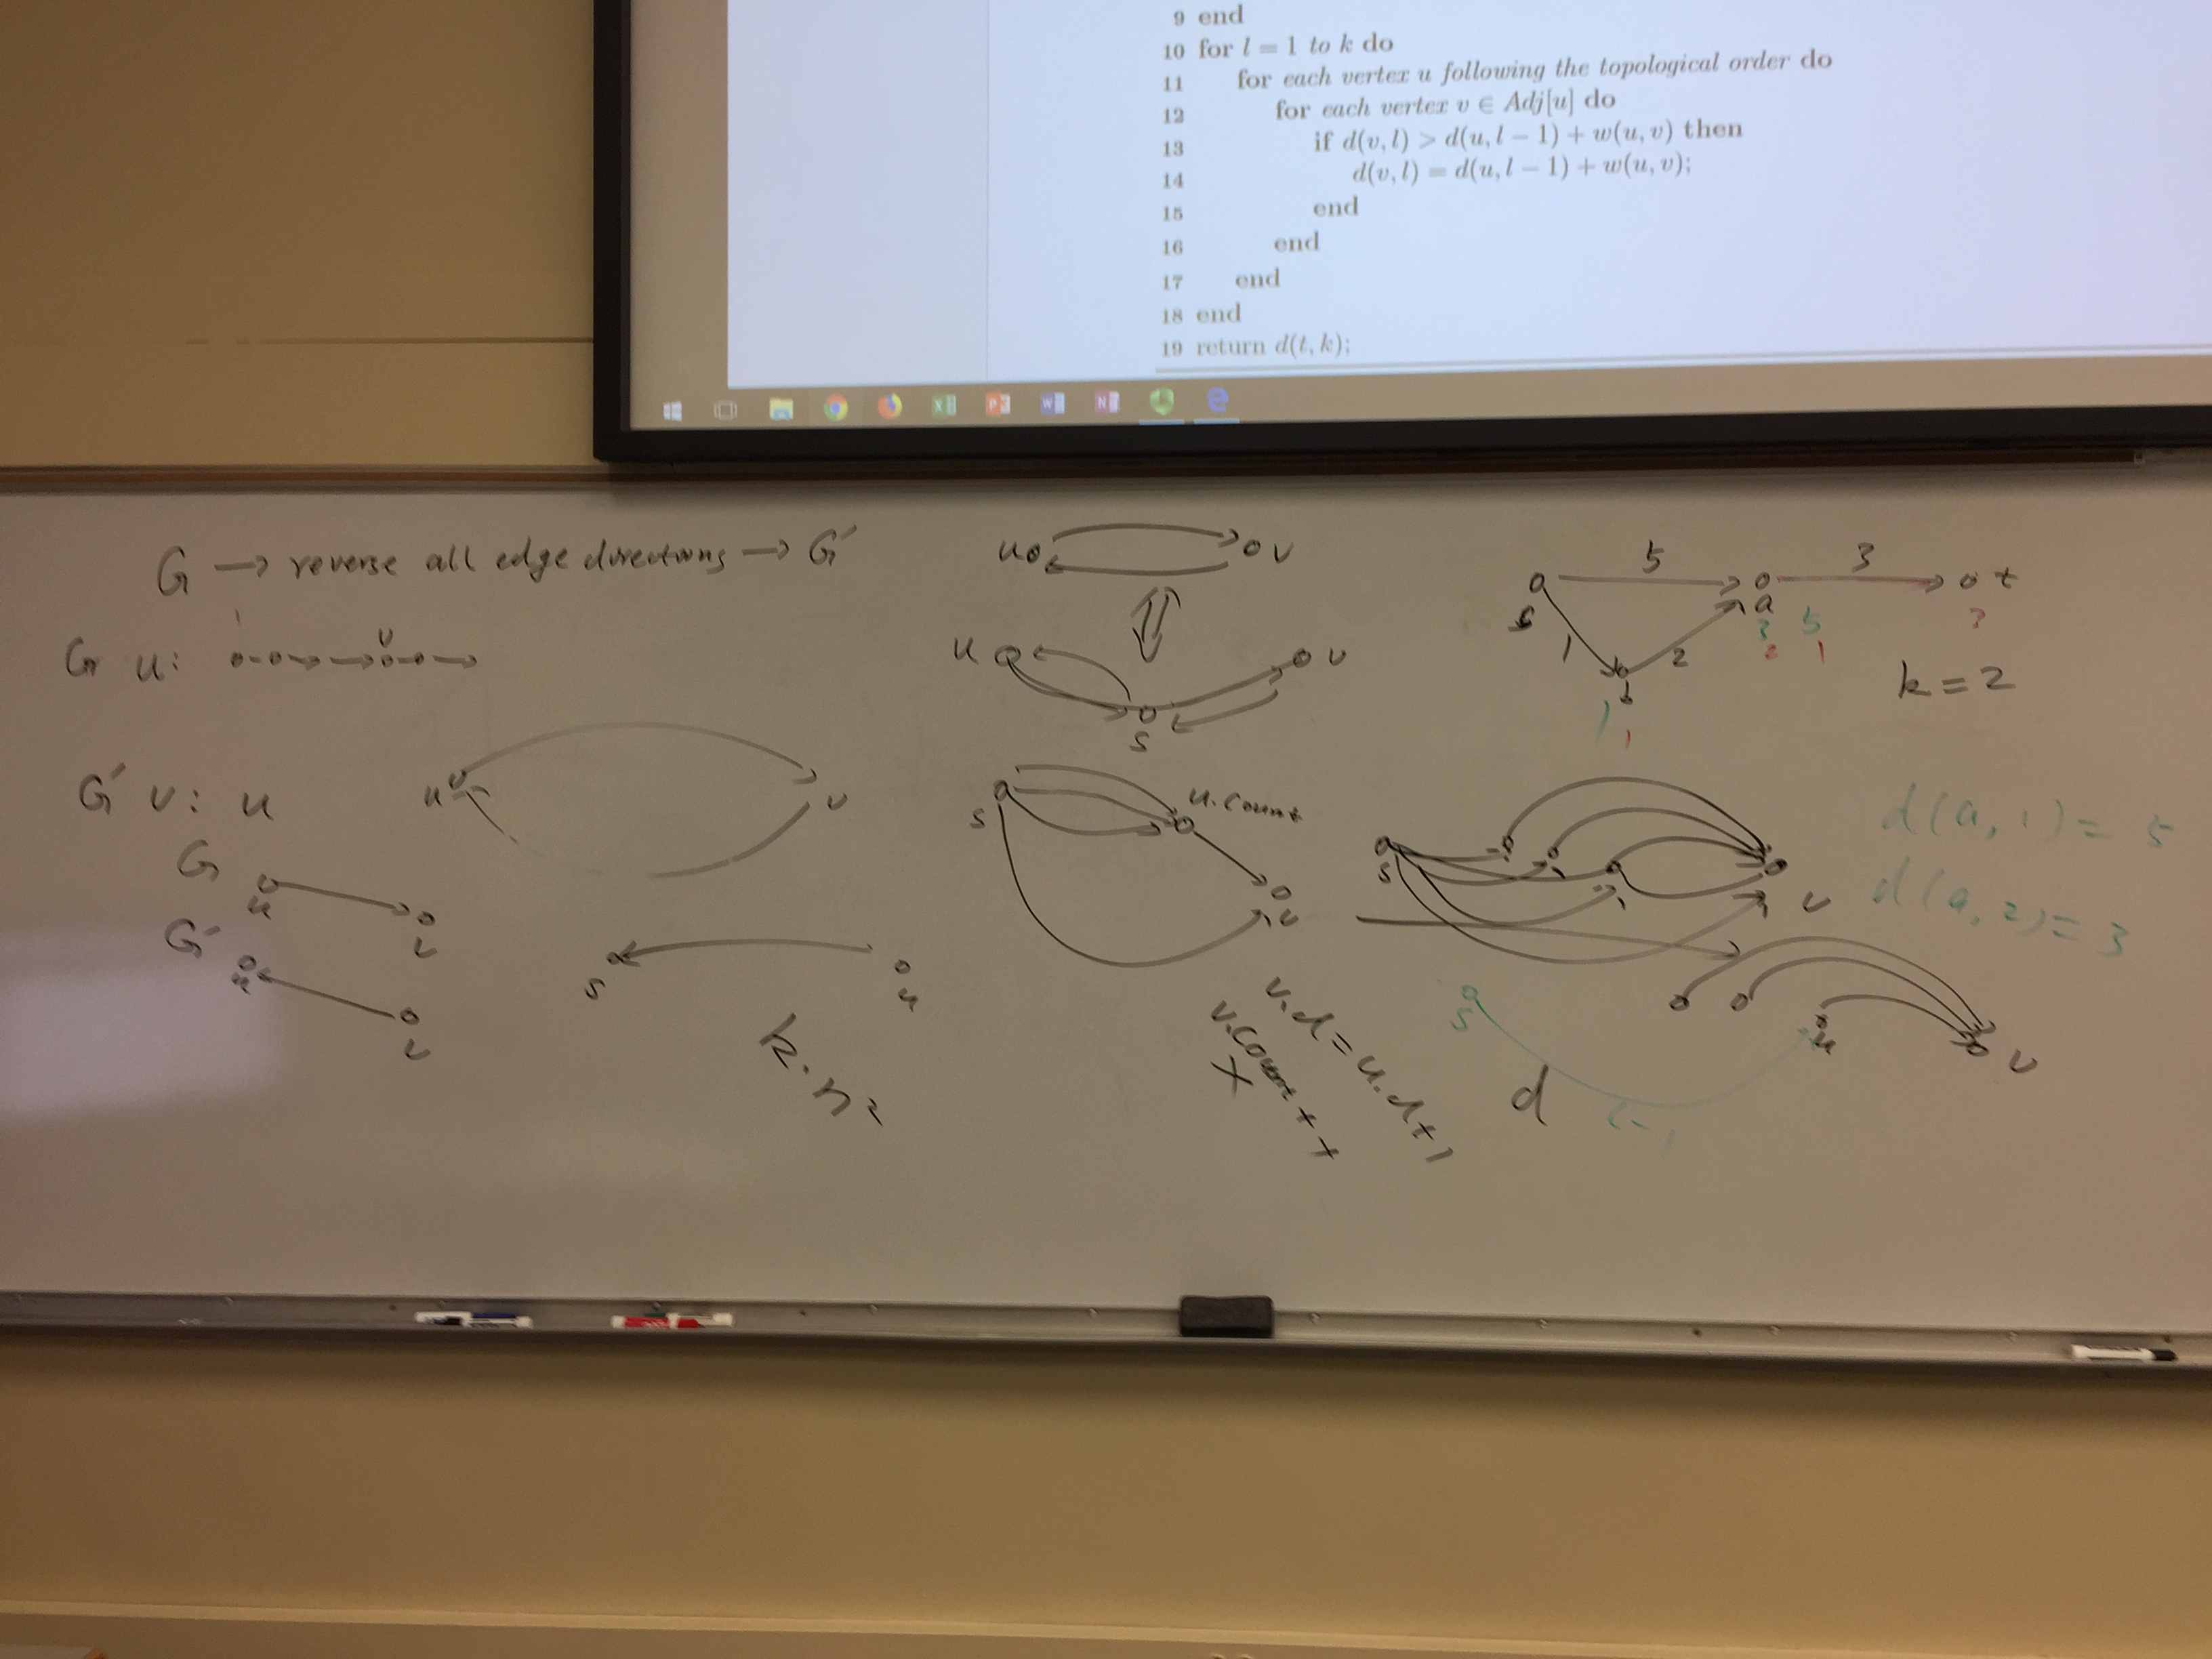 9 end
10 for l = 1 to k do
11 for each vertex u following the topological order do
12 for each vertex v ∈ Adj[u] do
13 if d(v, l) > d(u, l − 1) + w(u, v) then
14 d(v, l) = d(u, l − 1) + w(u, v);
15 end
16 end
17 end
18 end
19 return d(t, k);
G → reverse all edge directions → G′
G u:
v
G′ v: u
u v
G
u v
G′
u v
s u
k·n²
u v
u v
s
s u.count
v
v.d = u.d+1
v.count++
5 3
s a t
3 5
2 1
1 2
b
1
1
k = 2
s v
d(a, 1) = 5
d(a, 2) = 3
s u v
d
l-1